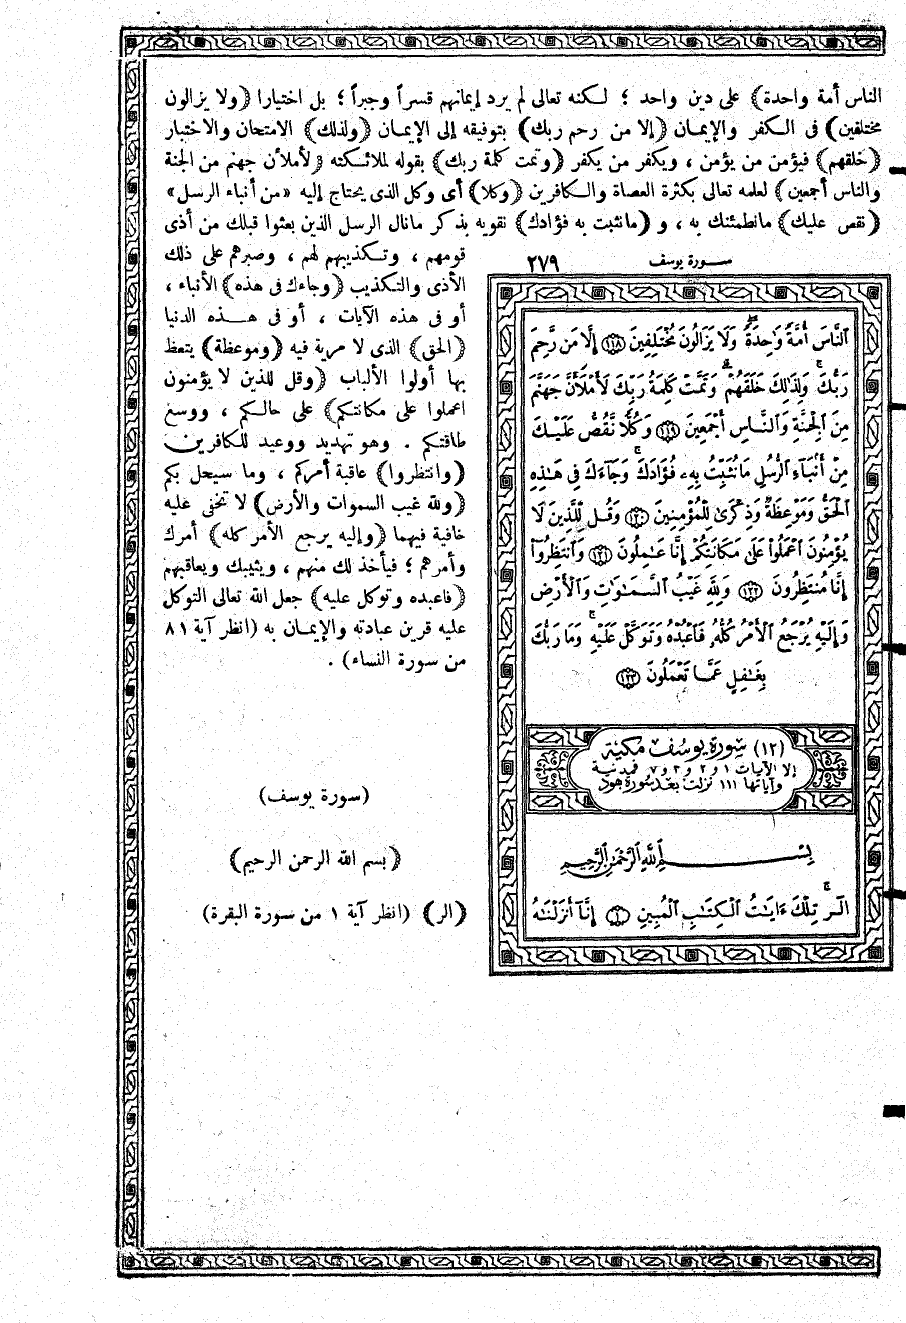 الناس أمة واحدة) على دين واحد ؛ لـكنه تعالى لم يرد إيمانهم قسراً وجبراً ؛ بل اختيارا (ولا يزالون
مختلفين) فى الـكفر والإيمـان (إلا من رحم ربك) بتوفيقه إلى الإيمـان (ولذلك) الامتحان والاختبار
(خلقهم) فيؤمن من يؤمن ، ويكفر من يكفر (وتمت كلمة ربك) بقوله لملائـكته (لأملأن جهنم من الجنة
والناس أجمعين) لعلمه تعالى بكثرة العصاة والـكافرين (وكلا) أى وكل الذى يحتاج إليه «من أنباء الرسل»
(نقص عليك) مانطمئنك به ، و (مانثبت به فؤادك) نقويه بذكر مانال الرسل الذين بعثوا قبلك من أذى
قومهم ، وتـكذيبهم لهم ، وصبرهم على ذلك
الأذى والتـكذيب (وجاءك فى هذه) الأنباء ،
أو فى هذه الآيات ، أو فى هـذه الدنيا
(الحق) الذى لا مرية فيه (وموعظة) يتعظ
بها أولوا الألباب (وقل للذين لا يؤمنون
اعملوا على مكانتكم) على حالـكم ، ووسع
طاقتكم . وهو تهديد ووعيد للكافرين
(وانتظروا) عاقبة أمركم ، وما سيحل بكم
(ولله غيب السموات والأرض) لا تخفى عليه
خافية فيهما (وإليه يرجع الأمر كله) أمرك
وأمرهم ؛ فيأخذ لك منهم ، ويثيبك ويعاقبهم
(فاعبده وتوكل عليه) جعل الله تعالى التوكل
عليه قرين عبادته والإيمـان به (انظر آية ٨١
من سورة النساء) .
سـورة يوسف ٢٧٩
ٱلنَّاسَ أُمَّةً وَٰحِدَةً ۖ وَلَا يَزَالُونَ مُخْتَلِفِينَ ١١٨ إِلَّا مَن رَّحِمَ
رَبُّكَ ۚ وَلِذَٰلِكَ خَلَقَهُمْ ۗ وَتَمَّتْ كَلِمَةُ رَبِّكَ لَأَمْلَأَنَّ جَهَنَّمَ
مِنَ ٱلْجِنَّةِ وَٱلنَّاسِ أَجْمَعِينَ ١١٩ وَكُلًّا نَّقُصُّ عَلَيْكَ
مِنْ أَنۢبَآءِ ٱلرُّسُلِ مَا نُثَبِّتُ بِهِۦ فُؤَادَكَ ۚ وَجَآءَكَ فِى هَـٰذِهِ
ٱلْحَقُّ وَمَوْعِظَةٌ وَذِكْرَىٰ لِلْمُؤْمِنِينَ ١٢٠ وَقُل لِّلَّذِينَ لَا
يُؤْمِنُونَ ٱعْمَلُوا۟ عَلَىٰ مَكَانَتِكُمْ إِنَّا عَـٰمِلُونَ ١٢١ وَٱنتَظِرُوٓا۟
إِنَّا مُنتَظِرُونَ ١٢٢ وَلِلَّهِ غَيْبُ ٱلسَّمَـٰوَٰتِ وَٱلْأَرْضِ
وَإِلَيْهِ يُرْجَعُ ٱلْأَمْرُ كُلُّهُۥ فَٱعْبُدْهُ وَتَوَكَّلْ عَلَيْهِ ۚ وَمَا رَبُّكَ
بِغَـٰفِلٍ عَمَّا تَعْمَلُونَ ١٢٣
(١٢) سورة يوسف مكية
إلا الآيات ١ و ٢ و ٣ و ٧ فمدنية
وآياتها ١١١ نزلت بعد سورة هود
بِسْمِ ٱللَّهِ ٱلرَّحْمَـٰنِ ٱلرَّحِيمِ
الٓر ۚ تِلْكَ ءَايَـٰتُ ٱلْكِتَـٰبِ ٱلْمُبِينِ ١ إِنَّآ أَنزَلْنَـٰهُ
(سورة يوسف)
(بسم الله الرحمن الرحيم)
(الر) (انظر آية ١ من سورة البقرة)